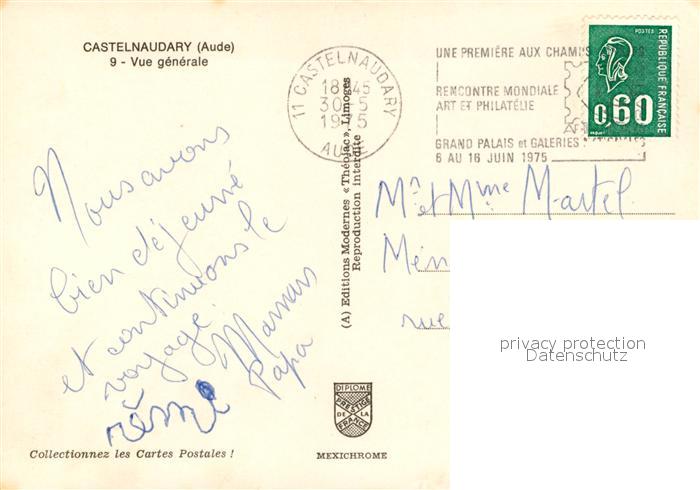 CASTELNAUDARY (Aude)
9 - Vue générale
11 CASTELNAUDARY
18 45
30-5
1975
AUDE
UNE PREMIÈRE AUX CHAMPS
RENCONTRE MONDIALE
ART ET PHILATÉLIE
GRAND PALAIS et GALERIES
6 AU 16 JUIN 1975
POSTES
RÉPUBLIQUE FRANÇAISE
0,60
Nous avons
bien déjeuné
et continuons le
voyage.
Maman
Papa
rémi
(A) Editions Modernes « Théojac », Limoges
Reproduction interdite
Mr et Mme Martel
rue
privacy protection
Datenschutz
DIPLOME
PRESTIGE
DE LA
FRANCE
Collectionnez les Cartes Postales !
MEXICHROME